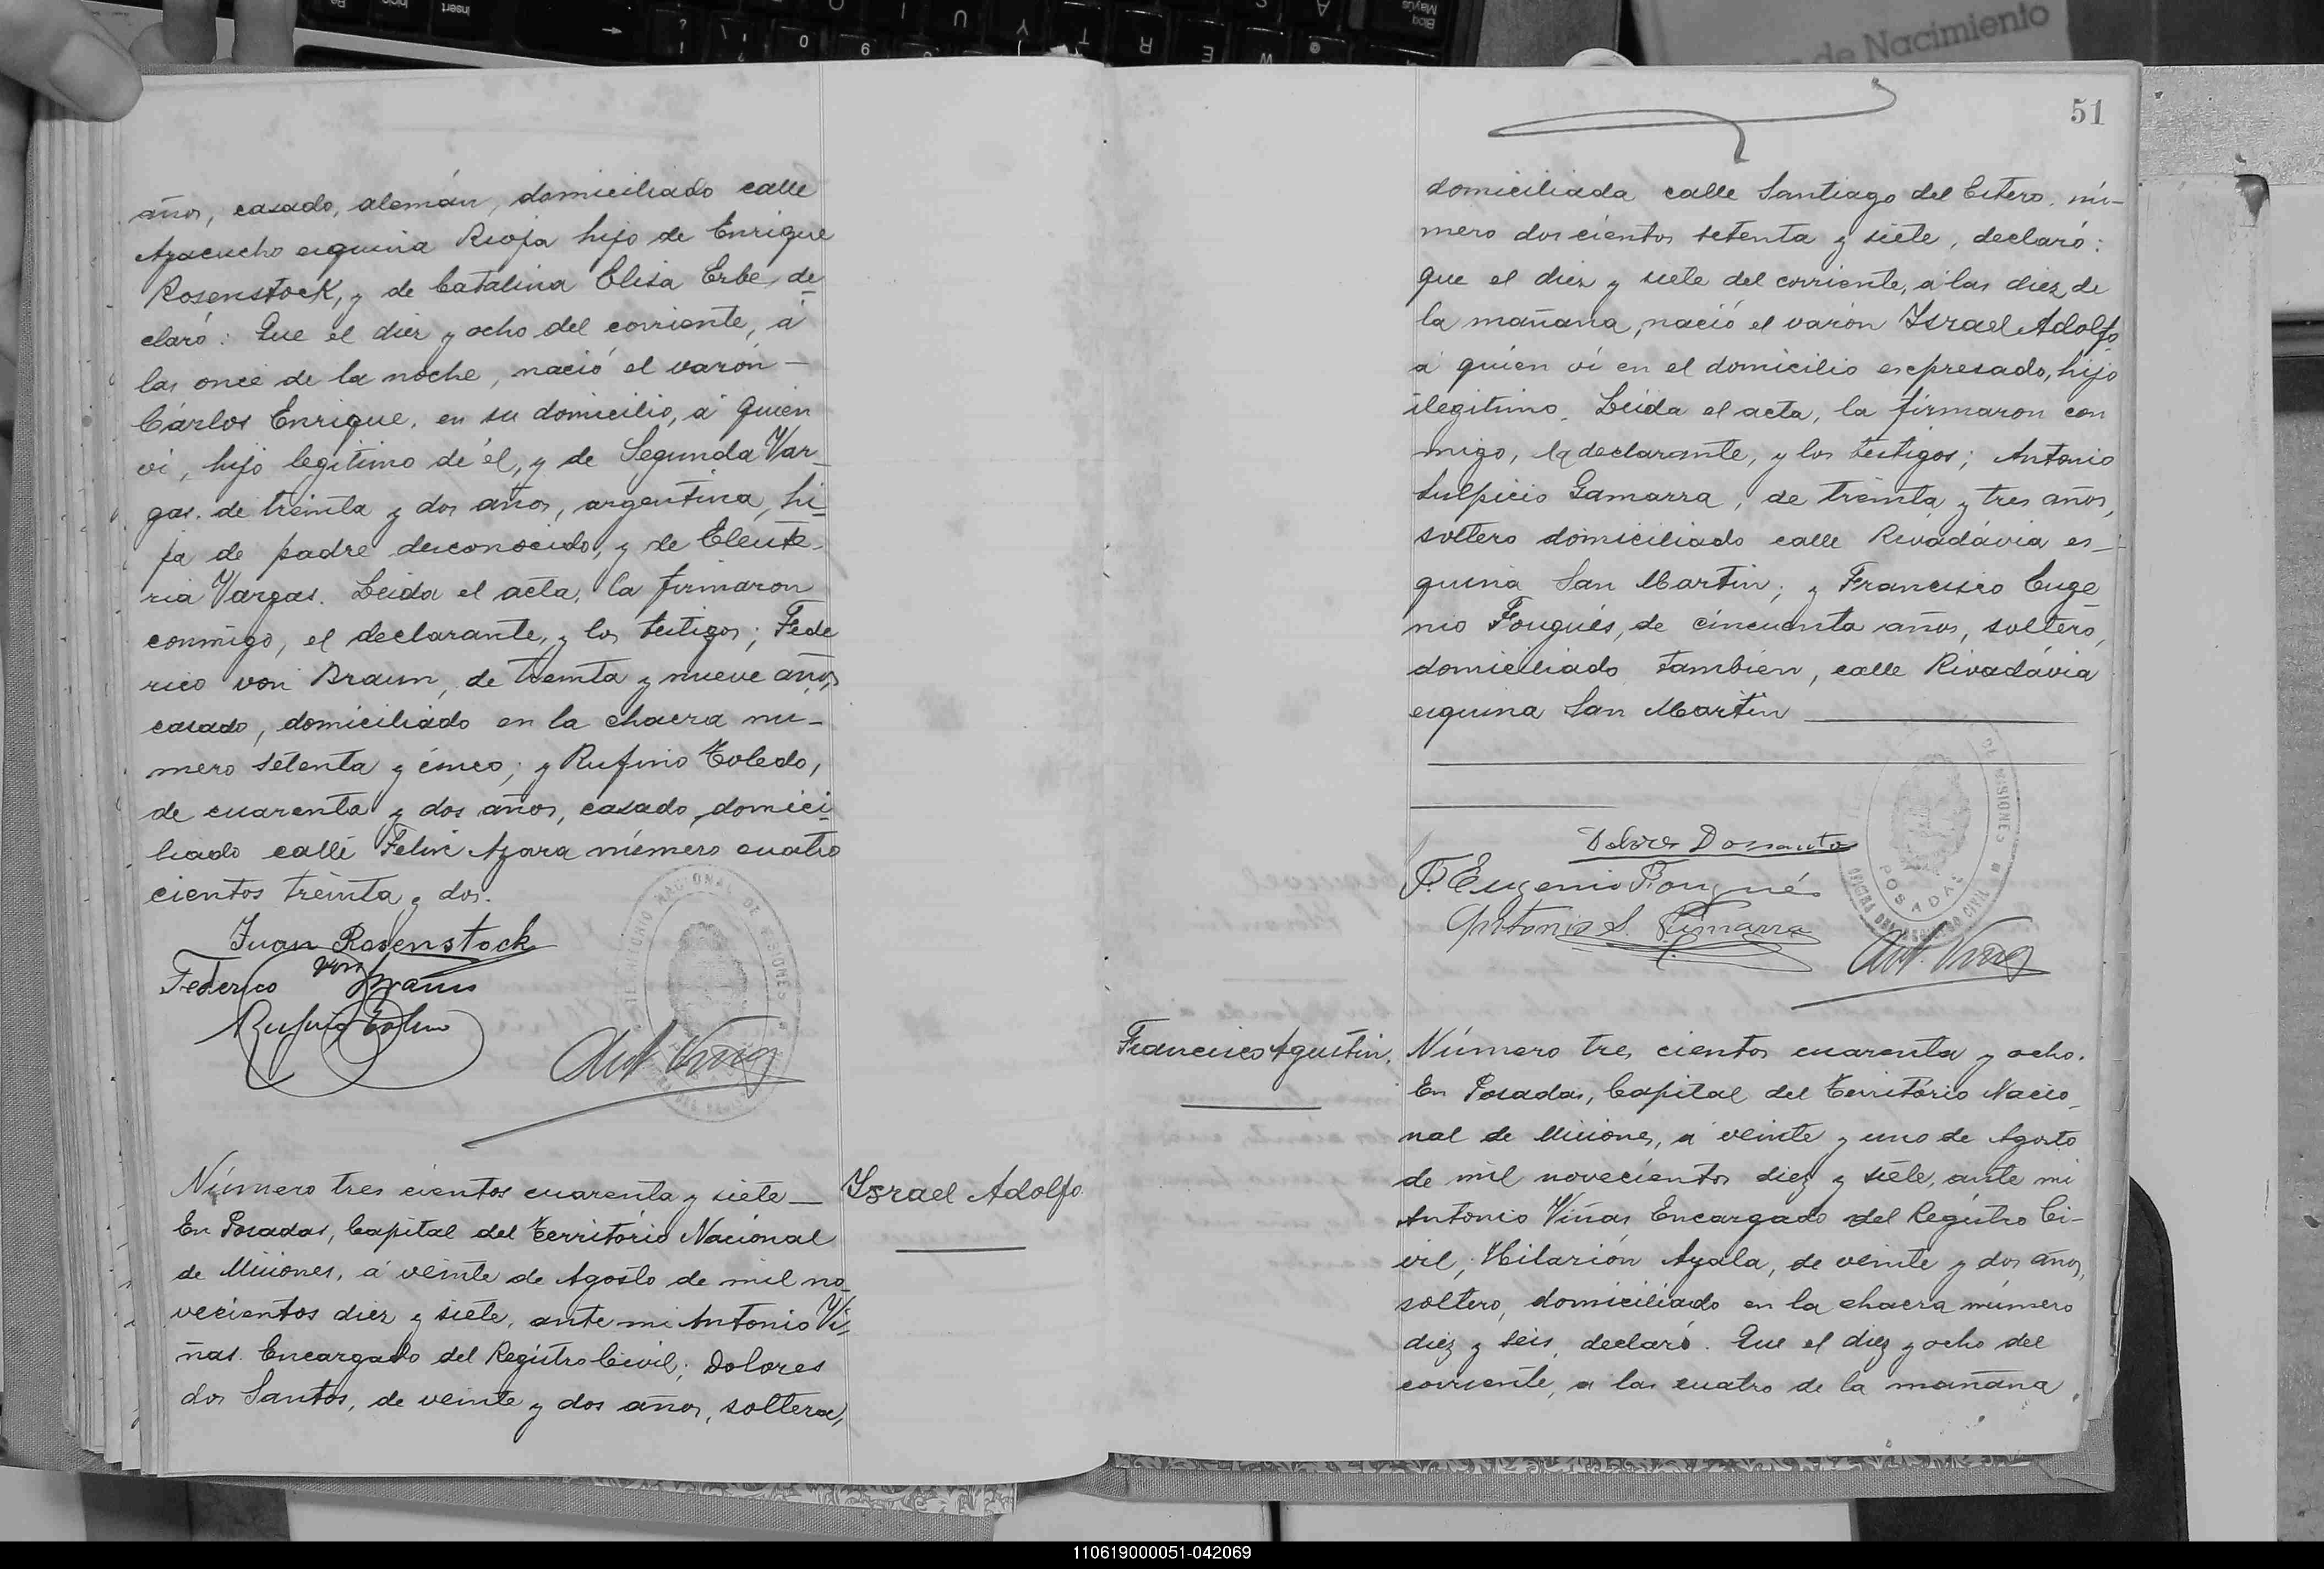 51
años, casado, alemán, domiciliado calle
Ayacucho esquina Rioja hijo de Enrique
Rosenstock, y de Catalina Elisa Erbe, de
claró: Que el diez y ocho del corriente, á
las once de la noche, nació el varón —
Cárlos Enrique, en su domicilio, á quien
vi, hijo legítimo de él, y de Segunda Var-
gas. de treinta y dos años, argentina, hi-
ja de padre desconocido, y de Eleute-
ria Vargas. Leida el acta, la firmaron
conmigo, el declarante, y los testigos; Fede
rico von Braun, de treinta y nueve años,
casado, domiciliado en la chacra nú-
mero setenta y cinco; y Rufino Toledo,
de cuarenta y dos años, casado, domici-
liado calle Felix Azara número cuatro
cientos treinta y dos.
Juan Rosenstock
Federico von Braun
Rufino Toledo
Ant Viñas
Número tres cientos cuarenta y siete —
Israel Adolfo
En Posadas, Capital del Território Nacional
de Misiones, á veinte de Agosto de mil no-
vecientos diez y siete, ante mi Antonio Vi-
ñas. Encargado del Registro Civil; Dolores
dos Santos, de veinte y dos años, soltera,
domiciliada calle Santiago del Estero, nú-
mero dos cientos setenta y siete, declaró:
que el diez y siete del corriente, á las diez de
la mañana, nació el varón Israel Adolfo
á quien vi en el domicilio espresado, hijo
ilegitimo. Leida el acta, la firmaron con
migo, la declarante, y los testigos; Antonio
Sulpicio Gamarra, de treinta y tres años,
soltero domiciliado calle Rivadávia es-
quina San Martin; y Francisco Euge-
nio Fougués, de cincuenta años, soltero,
domiciliado tambien, calle Rivadávia
esquina San Martin
OFICINA DEL REGISTRO CIVIL
POSADAS
Dolores Dossantos
F. Eugenio Fougués
Antonio S. Gamarra
Ant. Viñas
Francisco Agustin.
Número tres cientos cuarenta y ocho.
En Posadas, Capital del Território Nacio-
nal de Misiones, á veinte y uno de Agosto
de mil novecientos diez y siete, ante mi
Antonio Viñas, Encargado del Registro Ci-
vil; Hilarión Ayala, de veinte y dos años,
soltero, domiciliado en la chacra número
diez y seis, declaró. Que el diez y ocho del
corriente, a las cuatro de la mañana,
de Nacimiento
110619000051-042069